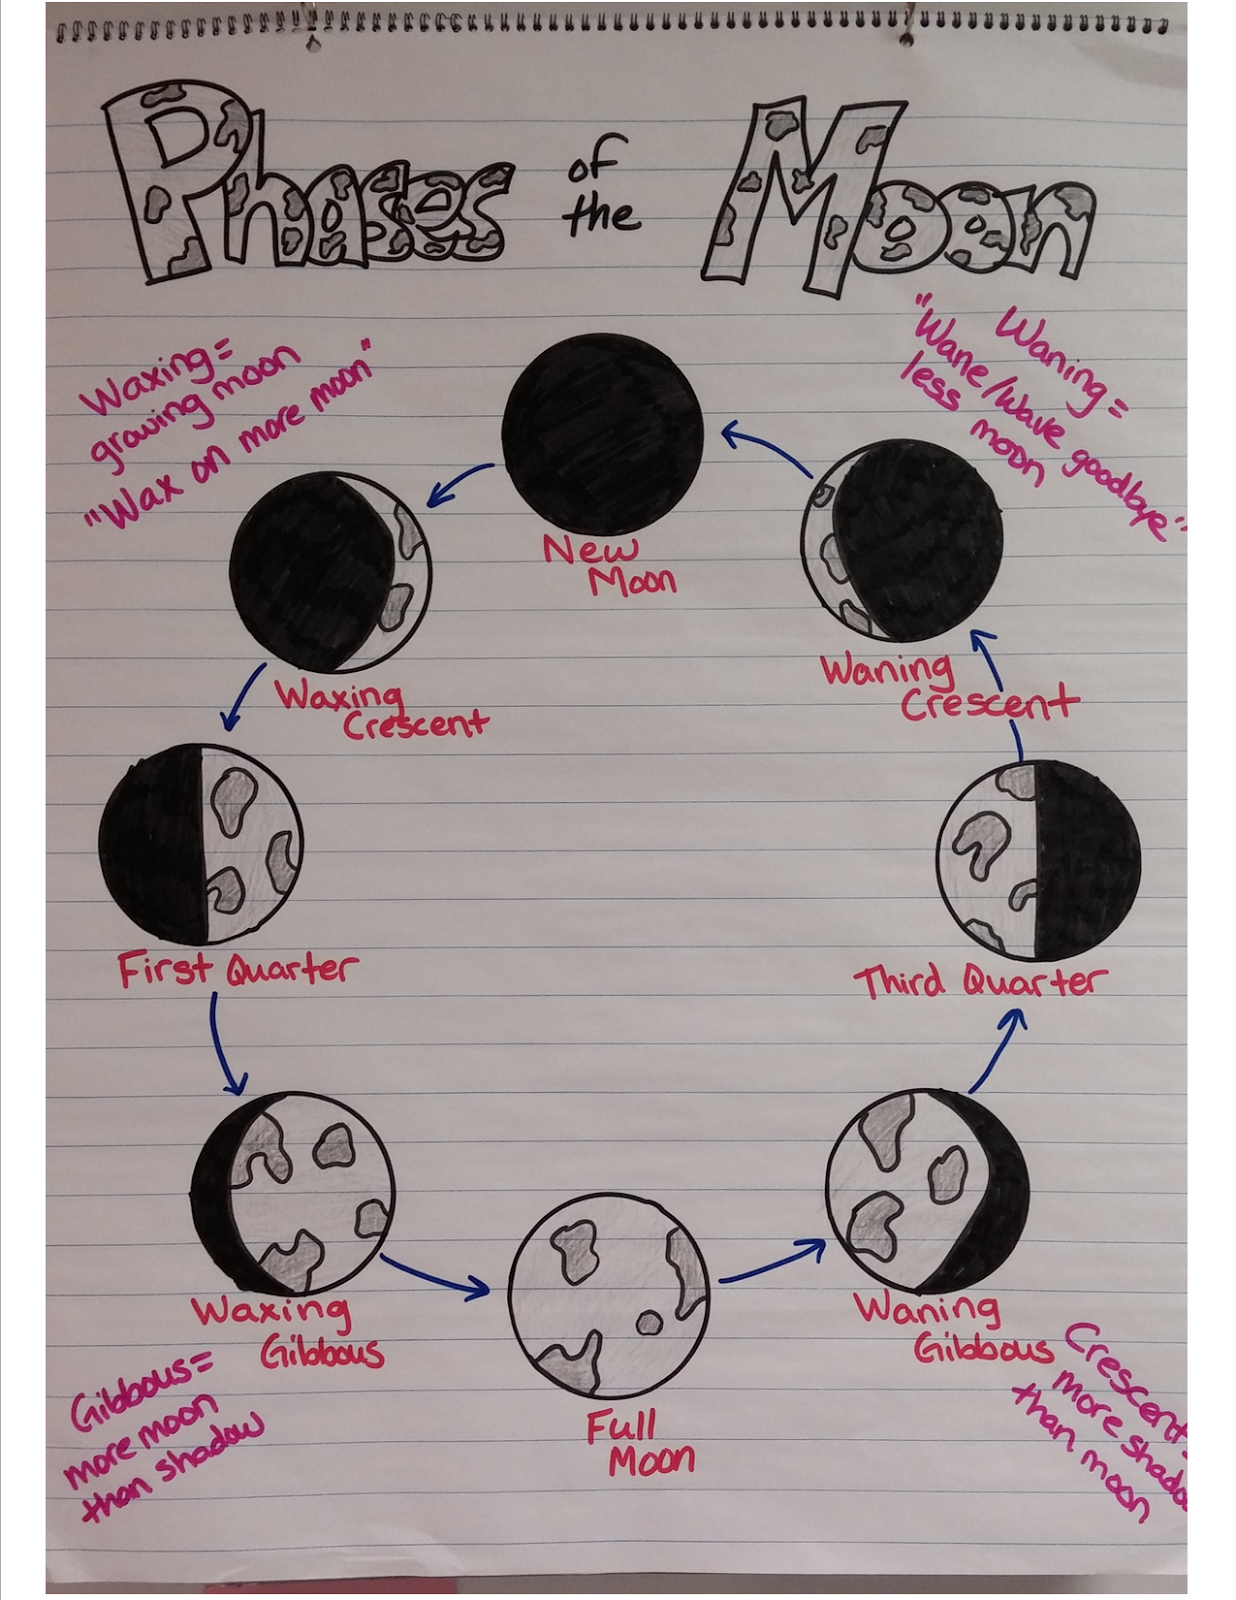 Phases of the Moon
Waxing=
growing moon
"Wax on more moon"
Waning=
"Wane/Wave goodbye"
less
moon
New
Moon
Waxing
Crescent
Waning
Crescent
First Quarter
Third Quarter
Waxing
Gibbous
Waning
Gibbous
Full
Moon
Gibbous=
more moon
than shadow
Crescent=
more shado
than moon